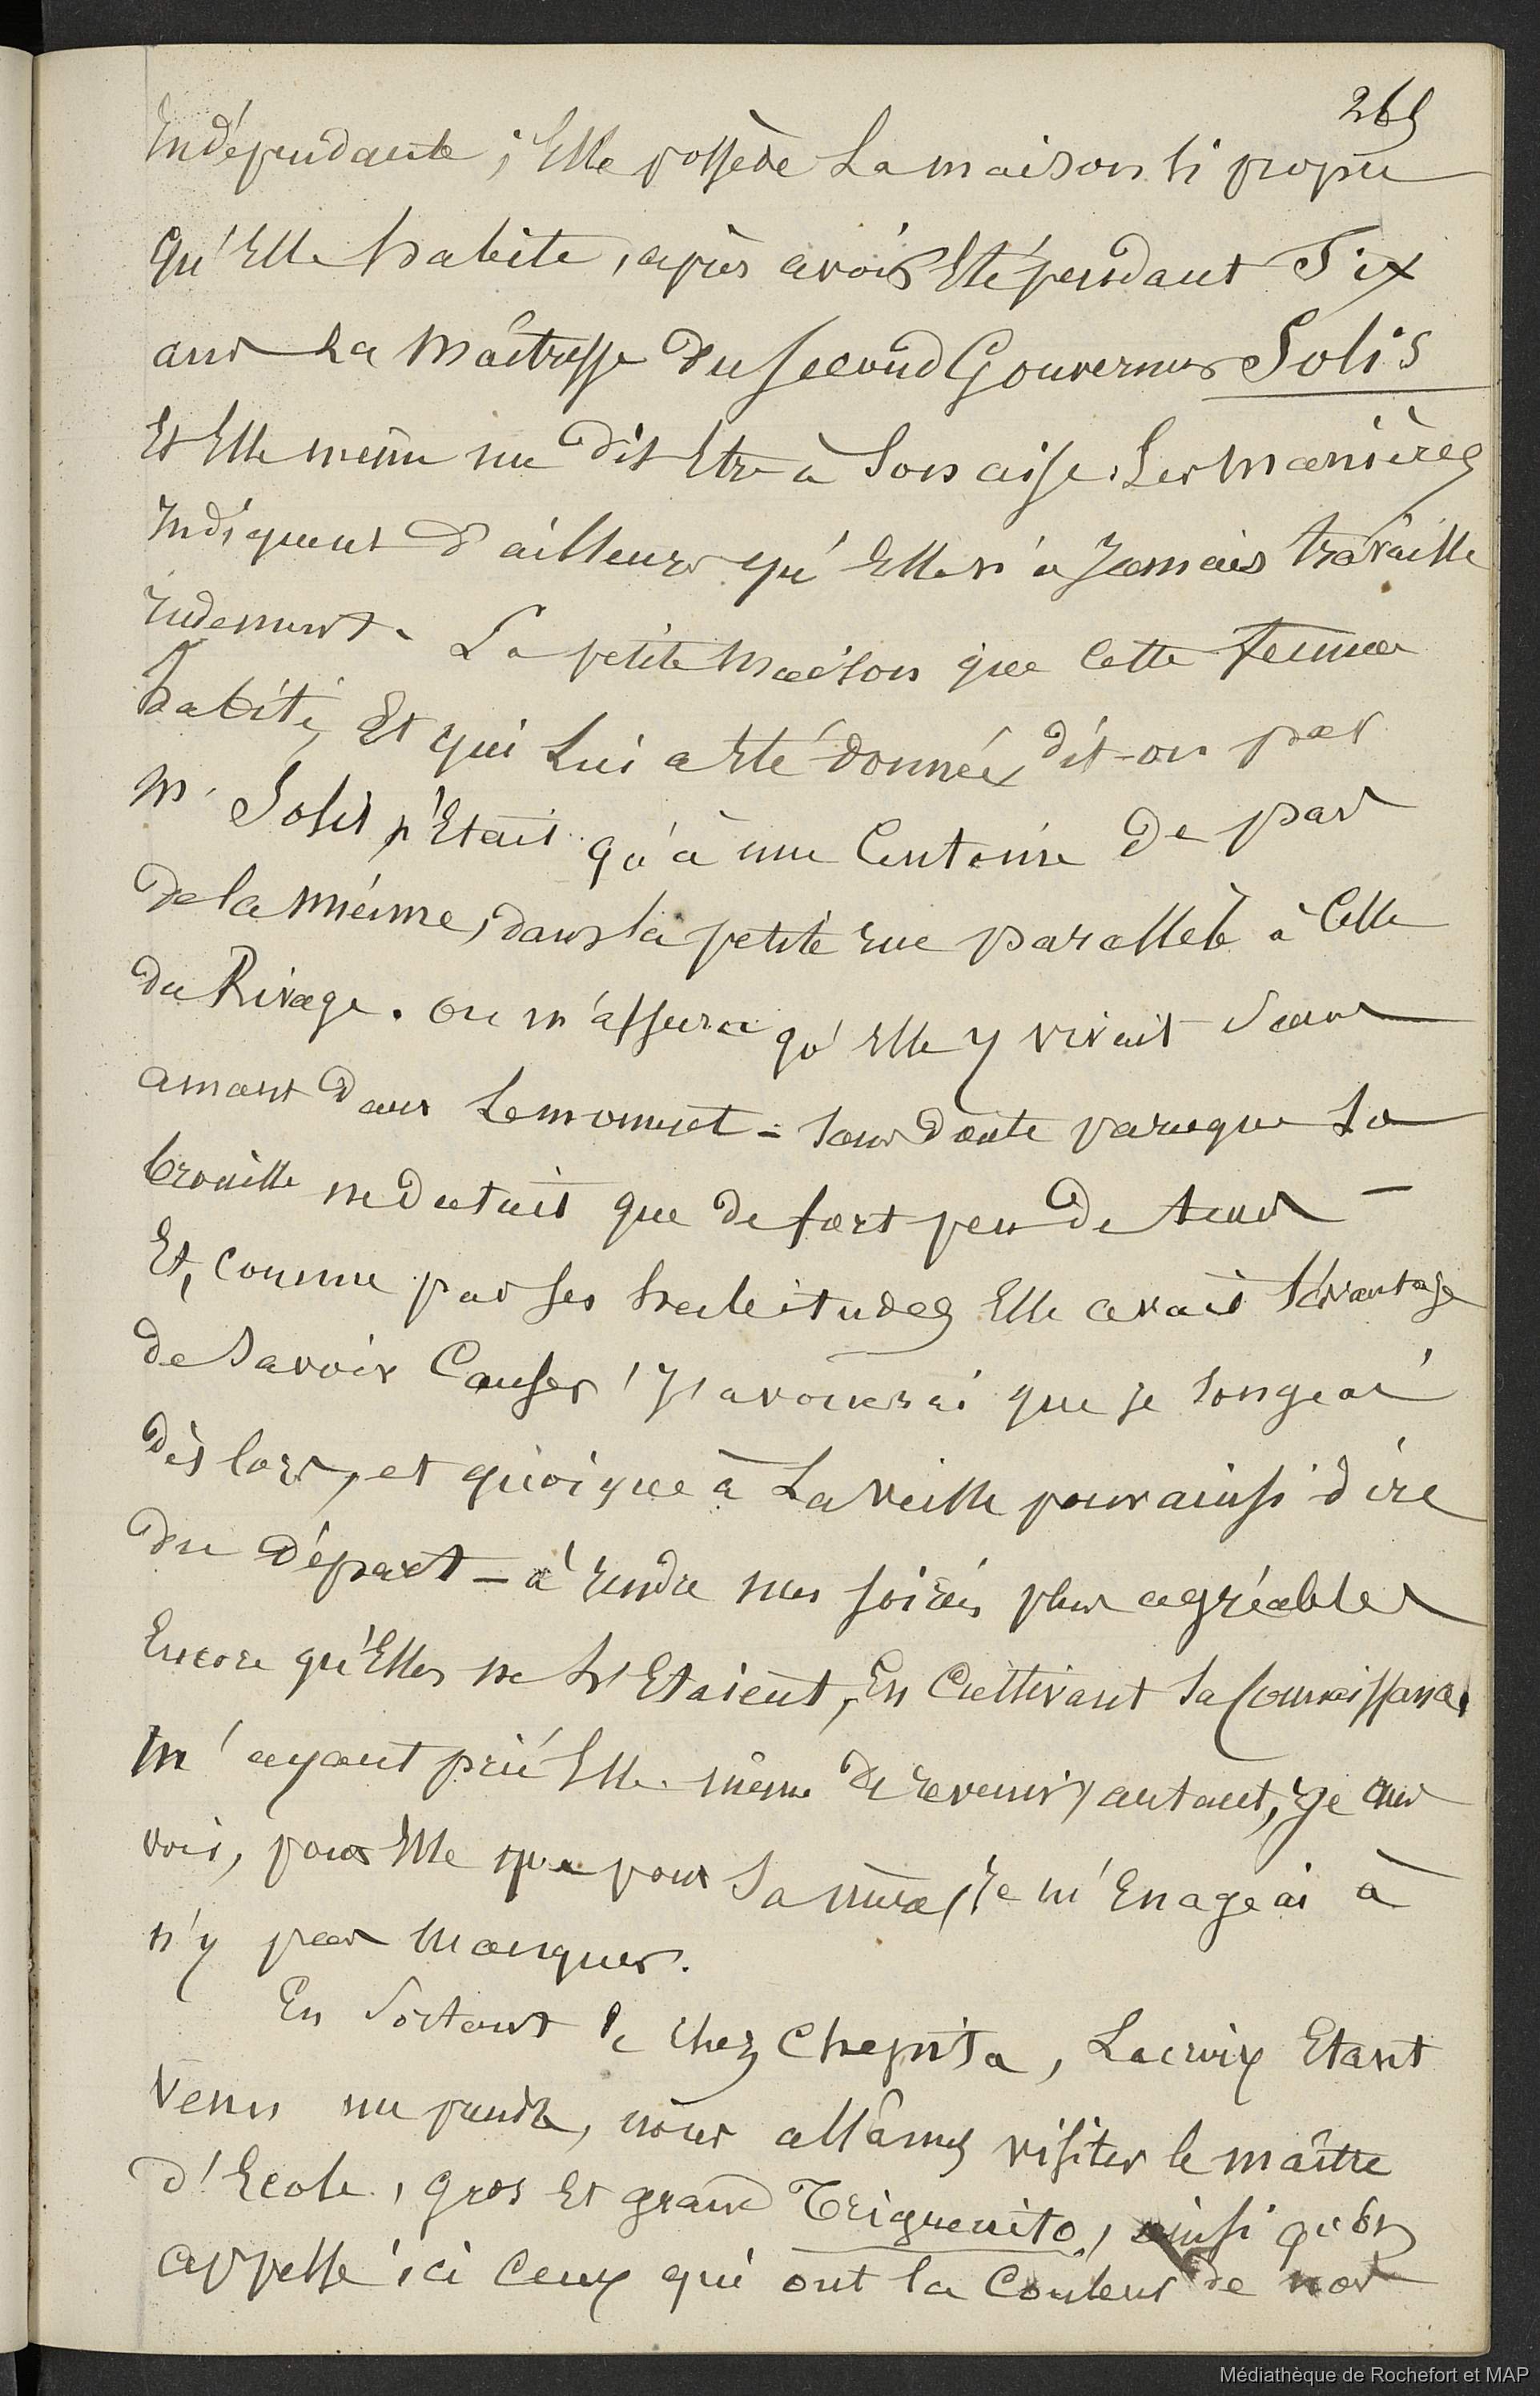 265
Indépendante ; Elle possède La maison si propre
qu'Elle habite, après avoir Eté pendant Six
ans La Maîtresse du second Gouverneur Solis
Et Elle même me dit Etre à Son aise. Ses manières
Indiquent d'ailleurs qu'Elle n'a Jamais travaillé
rudement. La petite Maison que Cette femme
habite, Et qui Lui a Eté donnée, dit-on par
M. Solis n'Etait qu'à une Centaine de pas
de la mienne, dans la petite rue parallèle à Celle
du Rivage. On m'assura qu'Elle y vivait Sans
amant dans Le moment - Sans doute parceque Sa
brouille ne datait que de fort peu de tems -
Et, Comme par ses habitudes Elle avait l'avantage
de Savoir Causer, J'avouerai que je Songeai
dès lors, et quoique à La veille pour ainsi dire
du départ - à rendre mes soirées plus agréables
Encore qu'Elles ne L'Etaient, En Cultivant Sa Connaissance.
M'ayant prié Elle-même de revenir, autant, je
vois, pour Elle que pour Sa mère, Je m'Enageai à
n'y pas Manquer.
En Sortant de chez Chepita, Lacroix Etant
Venu me prendre, nous allâmes visiter le maître
d'Ecole, gros Et grand Trigueñito, ainsi qu'on
appelle ici Ceux qui ont la Couleur de nos
Médiathèque de Rochefort et MAP